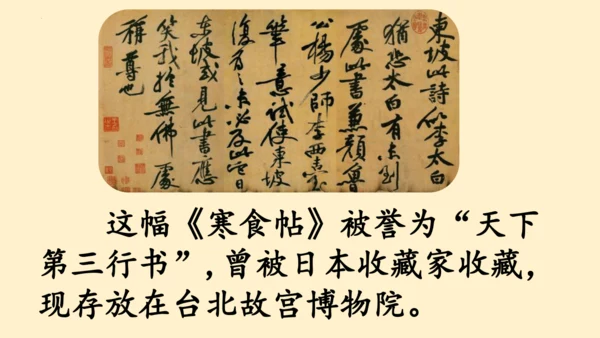 東坡此詩似李太白
猶恐太白有未到
處此書兼顏魯
公楊少師李西臺
筆意試使東坡
復為之未必及此它日
東坡或見此書應
笑我於無佛處
稱尊也
这幅《寒食帖》被誉为“天下
第三行书”,曾被日本收藏家收藏,
现存放在台北故宫博物院。